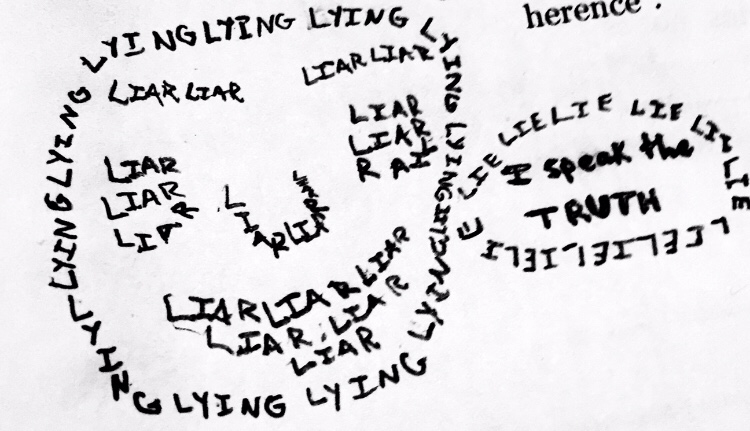 herence .
LYING LYING LYING LYING LYING LYING LYING LYING LYING LYING LYING
LIAR LIAR
LIAR LIAR
LIAR
LIAR
LIAR
LIAR
LIAR
LIAR
LIAR LIAR
LIAR LIAR LIAR
LIAR LIAR
LIAR
LIE LIE LIE LIE LIE LIE LIE LIE LIE LIE
I speak the
TRUTH